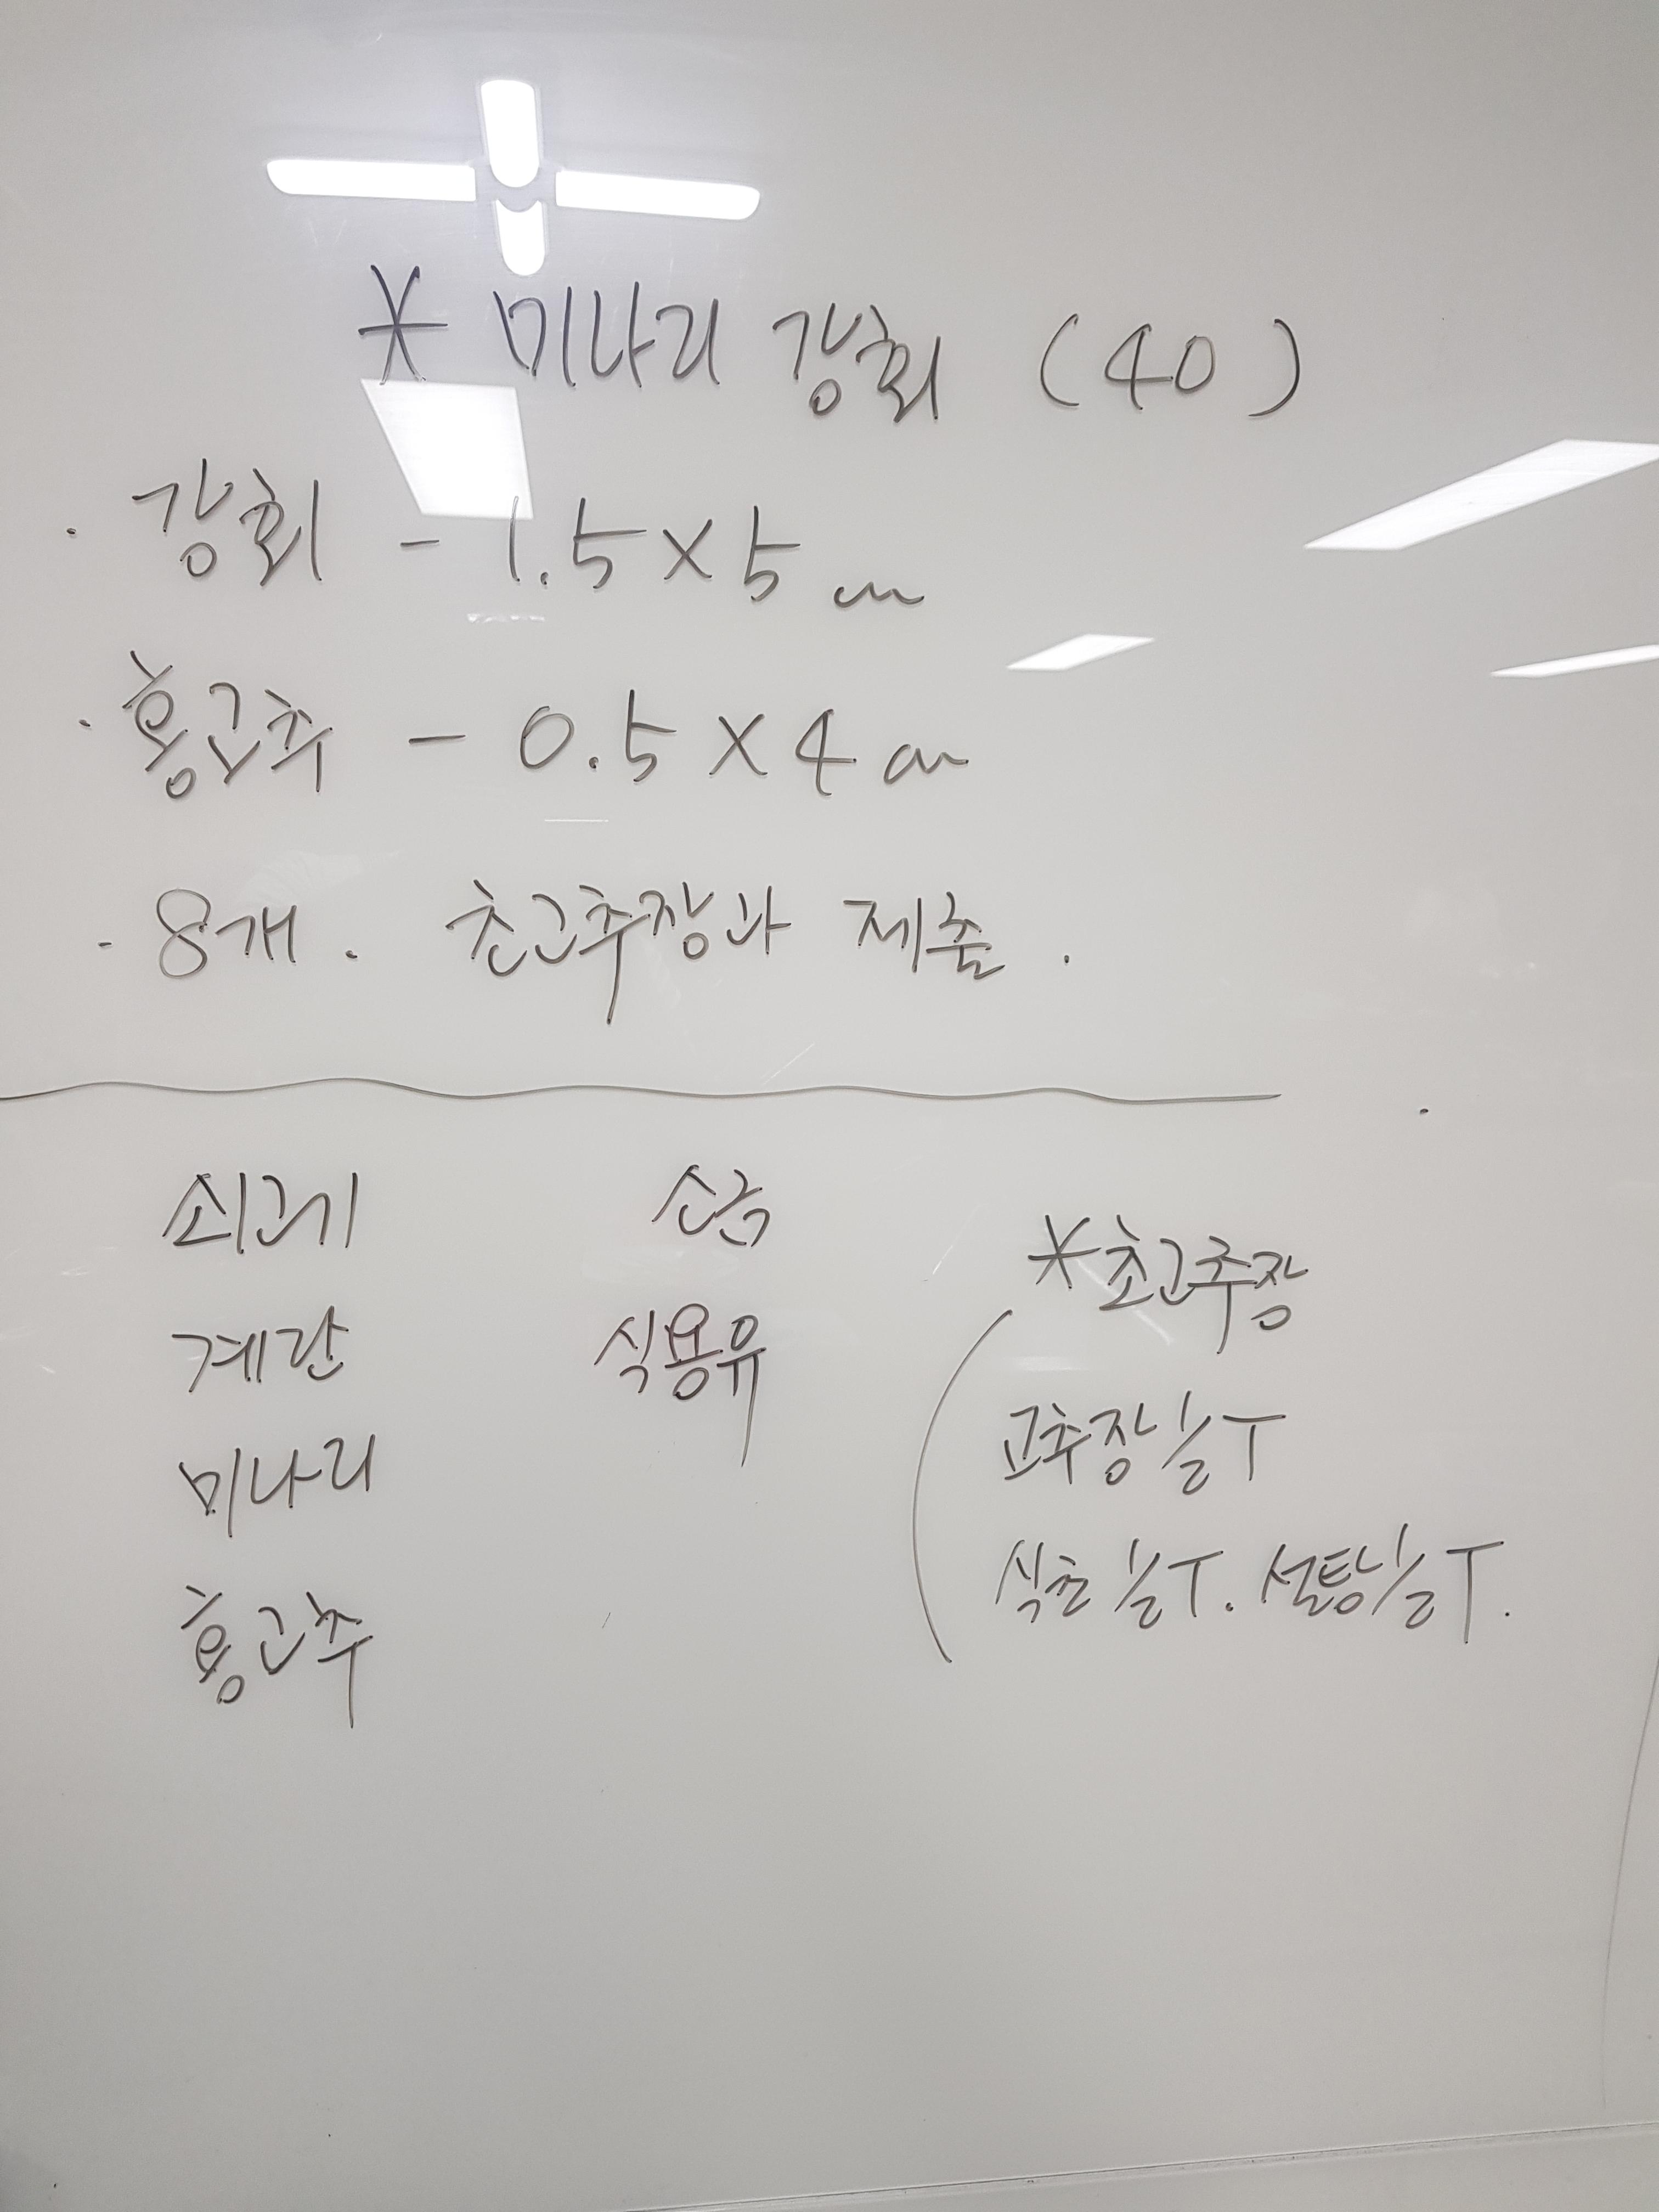 * 미나리 강회 (40)
· 강회 - 1.5 × 5 cm
· 홍고추 - 0.5 × 4 cm
- 8개. 초고추장과 제출.
쇠고기
계란
미나리
홍고추
소금
식용유
* 초고추장
고추장 1/2 T
식초 1/2 T. 설탕 1/2 T.